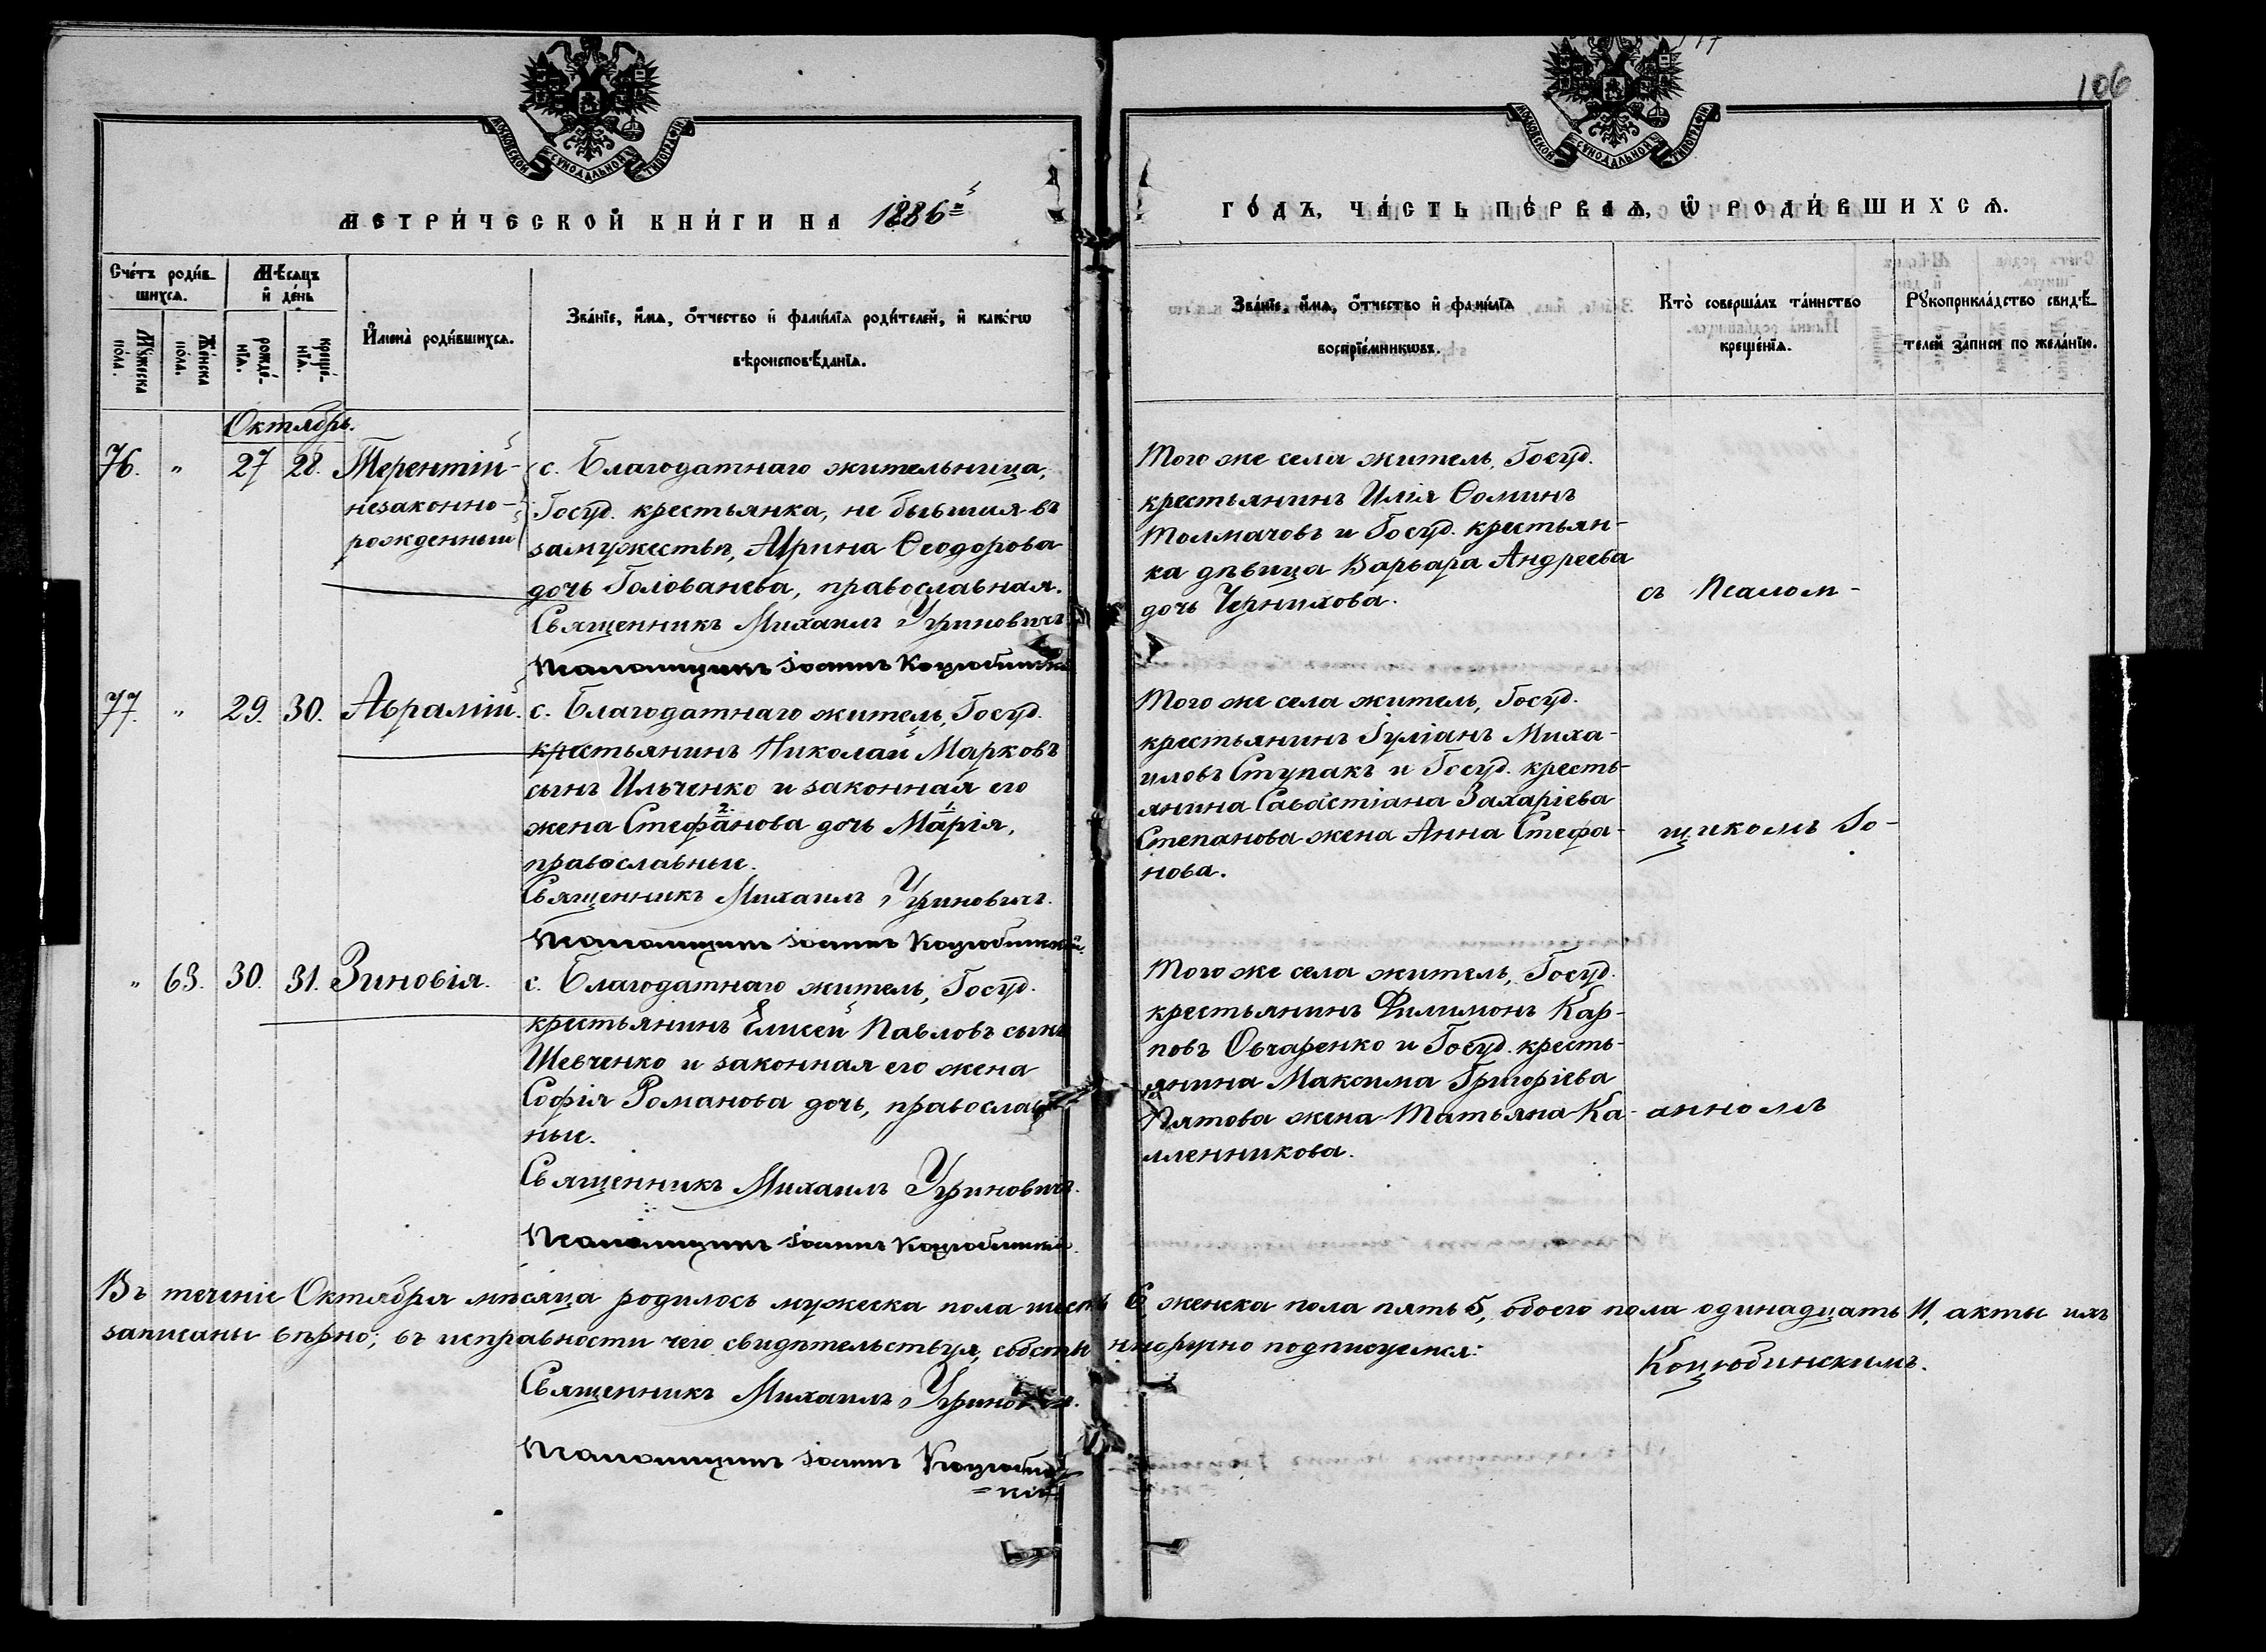 106
МОСКОВСКОЙ СѴНОДАЛЬНОЙ ТИПОГРАФІИ
МОСКОВСКОЙ СѴНОДАЛЬНОЙ ТИПОГРАФІИ
МЕТРИ́ЧЕСКОЙ КНИ́ГИ НА 1886й
ГО́ДЪ, ЧА́СТЬ ПЕ́РВАѦ, Ѡ РОДИ́ВШИХСѦ.
Сче́тъ роди́в-
шихсѧ.
Мѣ́сѧцъ
и҆ де́нь
Му́жеска
по́ла.
Же́нска
по́ла.
рожде́-
нїѧ.
креще́-
нїѧ.
И҆мена̀ роди́вшихсѧ.
Зва́нїе, и҆́мѧ, ѻ҆́тчество и҆ фами́лїѧ роди́телей, и҆ како́гѡ
вѣроисповѣ́данїѧ.
Зва́нїе, и҆́мѧ, ѻ҆́тчество и҆ фами́лїѧ
воспрїе́мникѡвъ.
Кто̀ соверша́лъ та́инство
креще́нїѧ.
Рꙋкоприкла́дство свидѣ́-
телей за́писи по жела́нїю.
Октябрь.
76. " 27 28. Терентій-
незаконно-
рожденный
с. Благодатнаго жительница,
Госуд. крестьянка, не бывшая въ
замужествѣ, Ирина Ѳеодорова
дочь Голованева, православная.
Священникъ Михаилъ Угриновичъ
Псаломщикъ Іоаннъ Коцюбинскій
Того же села житель, Госуд.
крестьянинъ Илія Ѳоминъ
Толмачовъ и Госуд. крестьян-
ка дѣвица Варвара Андреева
дочь Чернихова.
съ Псалом-
77. " 29. 30. Аврамій.
с. Благодатнаго житель, Госуд.
крестьянинъ Николай Марковъ
сынъ Ильченко и законная его
жена Стефанова дочь Марія,
православные.
Священникъ Михаилъ Угриновичъ.
Псаломщикъ Іоаннъ Коцюбинскій.
Того же села житель, Госуд.
крестьянинъ Іуліанъ Миха-
иловъ Ступакъ и Госуд. кресть-
янина Савастіана Захаріева
Степанова жена Анна Стефа-
нова.
щикомъ Іо-
" 63. 30. 31. Зиновія.
с. Благодатнаго житель, Госуд.
крестьянинъ Елисей Павловъ сынъ
Шевченко и законная его жена
Софія Романова дочь, православ
ные.
Священникъ Михаилъ Угриновичъ.
Псаломщикъ Іоаннъ Коцюбинскій.
Того же села житель, Госуд.
крестьянинъ Филимонъ Кар-
повъ Овчаренко и Госуд. кресть-
янина Максима Григоріева
Пятова жена Татьяна Ка-
мленникова.
анномъ
Въ теченіе Октября мѣсяца родилось мужеска пола шесть 6, женска пола пять 5, обоего пола одинадцать 11, акты ихъ
записаны вѣрно; въ исправности чего свидѣтельствуя, собственноручно подписуемся:
Священникъ Михаилъ Угриновичъ.
Псаломщикъ Іоаннъ Коцюбин
=скій
Коцюбинскимъ.